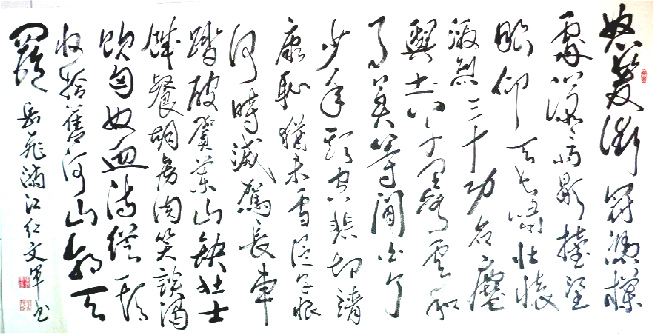 怒髮衝冠憑欄
處瀟瀟雨歇擡望
眼仰天長嘯壯懷
激烈三十功名塵
與土八千里路雲和
月莫等閒白了
少年頭空悲切靖
康恥猶未雪臣子恨
何時滅駕長車
踏破賀蘭山缺壯士
饑餐胡虜肉笑談渴
飲匈奴血待從頭
收拾舊河山朝天
闕 岳飛滿江紅文軍书